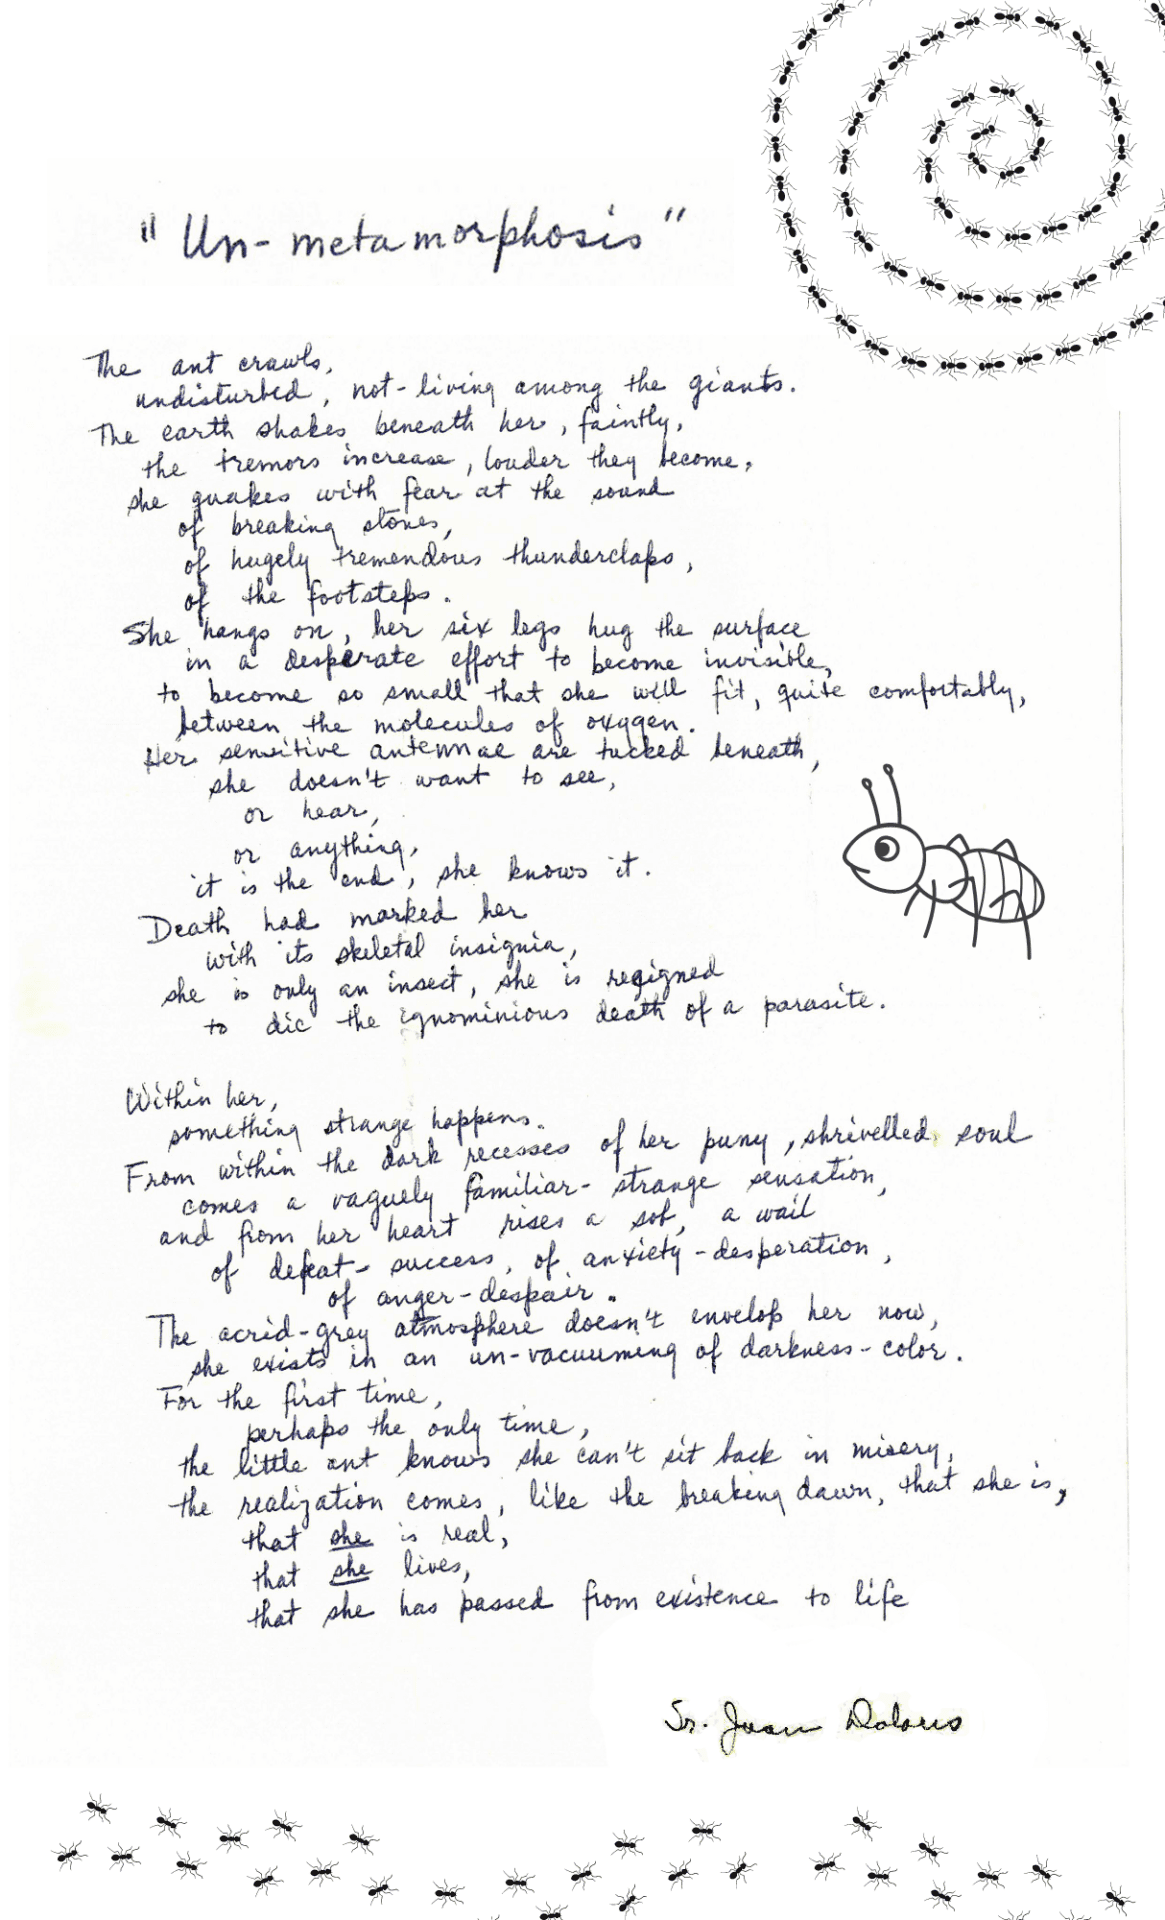 "Un-metamorphosis"
The ant crawls,
undisturbed, not-living among the giants.
The earth shakes beneath her, faintly,
the tremors increase, louder they become,
she quakes with fear at the sound
of breaking stones,
of hugely tremendous thunderclaps,
of the footsteps.
She hangs on, her six legs hug the surface
in a desperate effort to become invisible,
to become so small that she will fit, quite comfortably,
between the molecules of oxygen.
Her sensitive antennae are tucked beneath,
she doesn't want to see,
or hear,
or anything,
it is the end, she knows it.
Death had marked her
with its skeletal insignia,
she is only an insect, she is resigned
to die the ignominious death of a parasite.
Within her,
something strange happens.
From within the dark recesses of her puny, shrivelled soul
comes a vaguely familiar-strange sensation,
and from her heart rises a sob, a wail
of defeat-success, of anxiety-desperation,
of anger-despair.
The acrid-grey atmosphere doesn't envelop her now,
she exists in an un-vacuuming of darkness-color.
For the first time,
perhaps the only time,
the little ant knows she can't sit back in misery,
the realization comes, like the breaking dawn, that she is,
that she is real,
that she lives,
that she has passed from existence to life
Sr. Joan Dolores